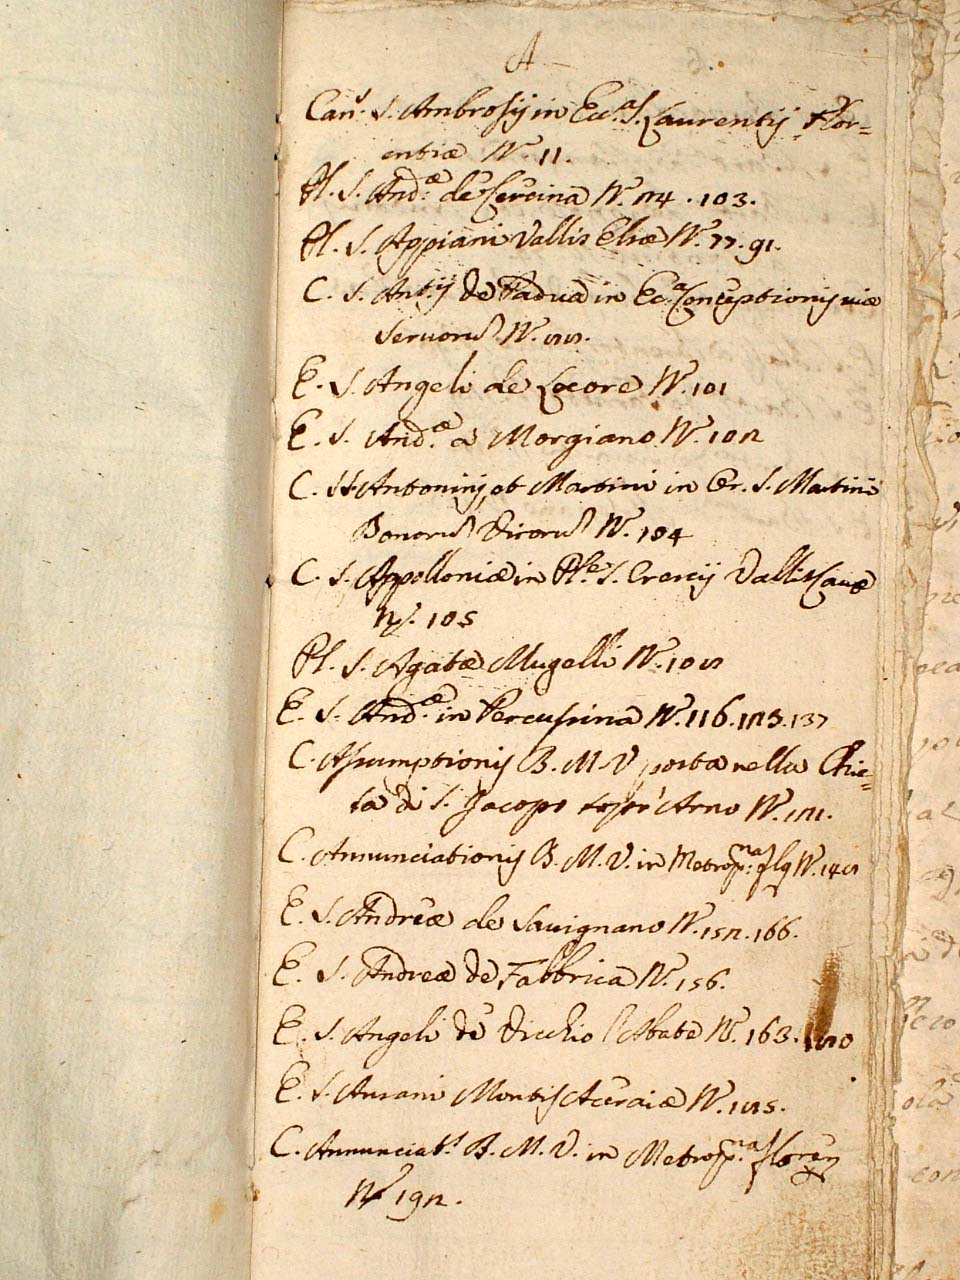 A
Can.s S. Ambrosij in Ecc.a S. Laurentij Flor=
entiæ N. 11.
Pl. S. And.æ de Cercina N. 103.
Pl. S. Appiani Vallis Elsæ N. 77. 91.
C. S. Ant.ij de Padua in Ecc.a Conceptionis viæ
Servoru N.
E. S. Angeli de Lecore N. 101
E. S. And.æ a Morgiano N. 102
C. SS. Antoninij et Martini in Or. S. Martini
Bonoru Viroru N. 104
C. S. Appolloniæ in Pl.e S. Crescij Vallis Cavæ
N. 105
Pl. S. Agatæ Mugelli N.
E. S. And.æ in Percussina N. 116. 123. 137
C. Assumptionis B. M. V. posta nella Chie=
sa di S. Jacopo sopr' Arno N. 121.
C. Annunciationis B. M. V. in Metrop.na flo N.
E. S. Andreæ de Savignano N. 152. 166.
E. S. Andreæ de Fabbrica N. 156.
E. S. Angeli de Vicchio l'Abate N. 163.
E. S. Ansani Montis Aceraiæ N.
C. Annunciat.s B. M. V. in Metrop.na floren
N. 192.